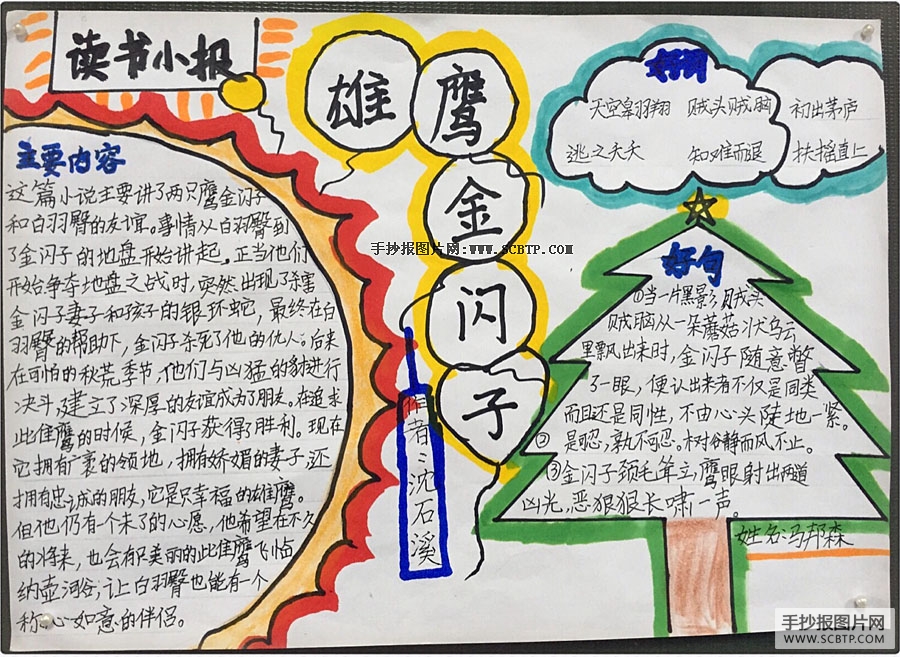 读书小报
雄鹰金闪子
作者:沈石溪
主要内容
这篇小说主要讲了两只鹰金闪子
和白羽臀的友谊。事情从白羽臀到
了金闪子的地盘开始讲起。正当他们
开始争夺地盘之战时,突然出现了
金闪子妻子和孩子的银环蛇,最终在白
羽臀的帮助下,金闪子杀死了他的仇人。后来
在可怕的秋荒季节,他们与凶猛的豺进行
决斗,建立了深厚的友谊成为了朋友。在追求
此隹鹰的时候,金闪子获得了胜利。现在
它拥有广袤的领地,拥有娇媚的妻子,还
拥有忠诚的朋友,它是只幸福的雄鹰。
但他仍有个未了的心愿,他希望在不久
的将来,也会有只美丽的此隹鹰飞临
纳壶河谷,让白羽臀也能有一个
称心如意的伴侣。
好词
天空翱翔 贼头贼脑 初出茅庐
逃之夭夭 知难而退 扶摇直上
好句
①当一片黑影,贼头
贼脑从一朵蘑菇状乌云
里飘出来时,金闪子随意瞥
了一眼,便认出来者不仅是同类
而且还是同性,不由心头陡地一紧。
②是忍,孰不可忍。树欲静而风不止。
③金闪子颈毛耸立,鹰眼射出两道
凶光,恶狠狠长啸一声。
姓名:马邦森
手抄报图片网:www.SCBTP.COM
手抄报图片网
WWW.SCBTP.COM